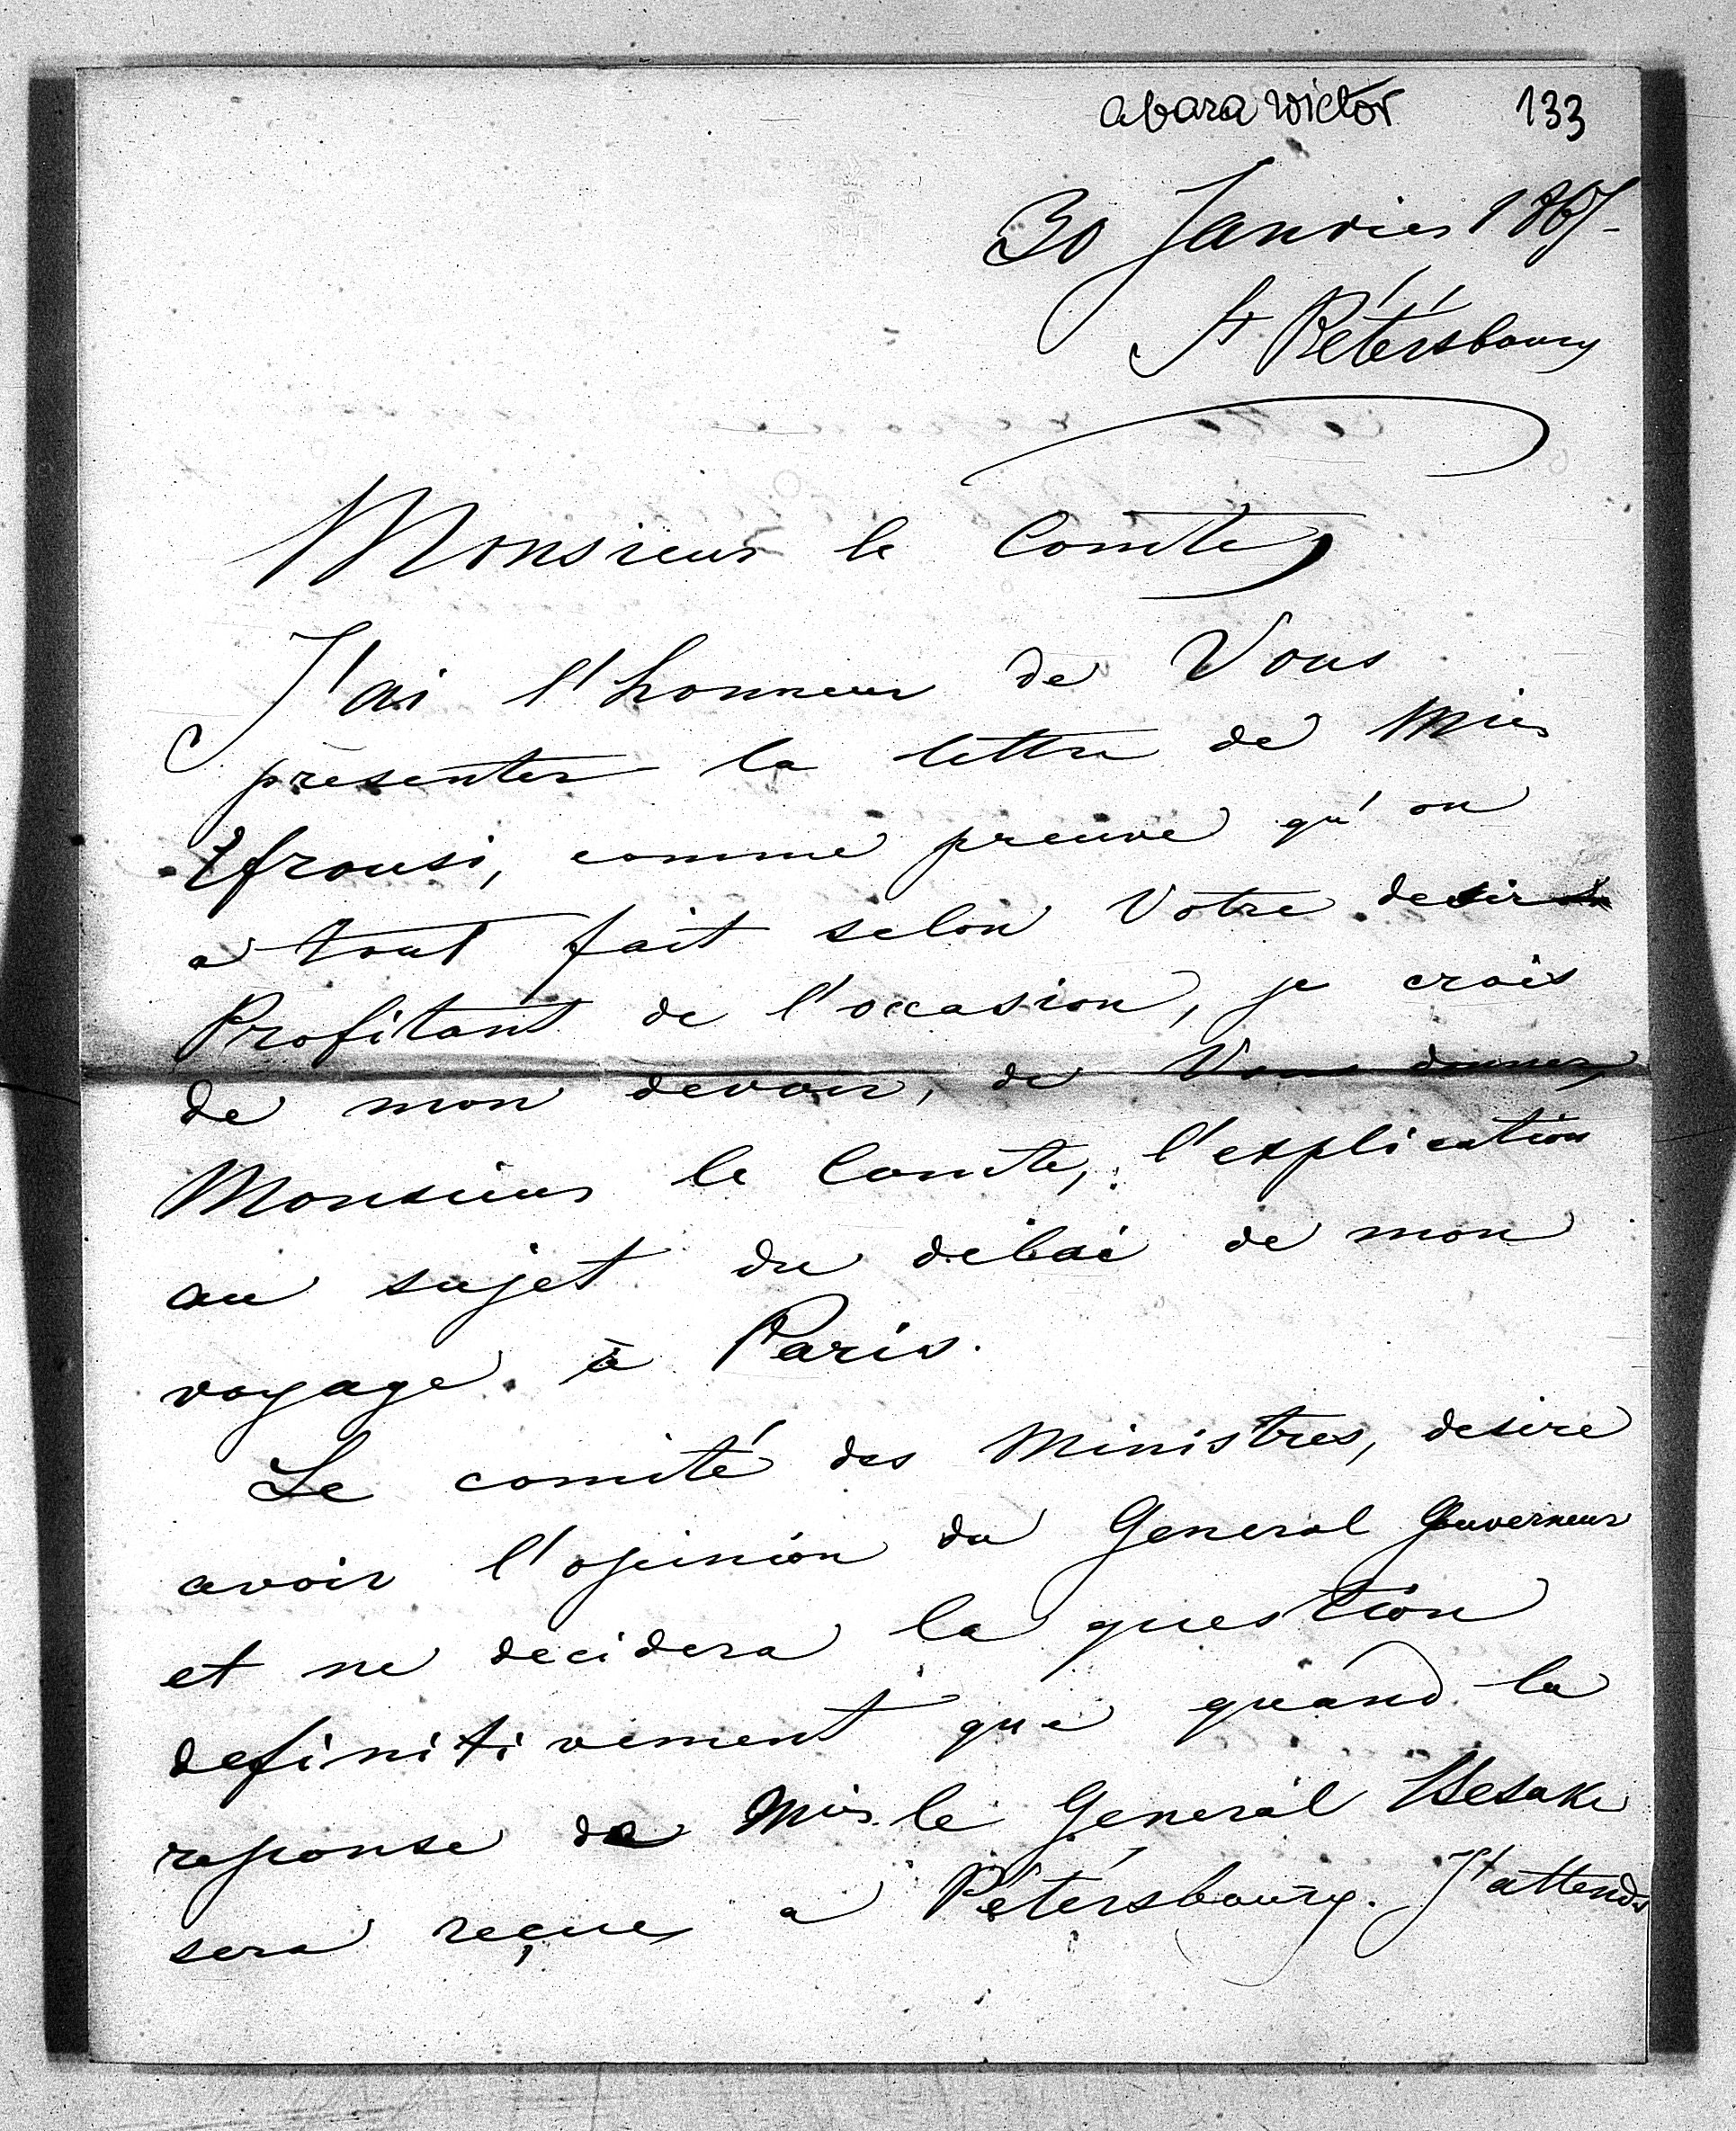 abara wictor 133
30 Janvier 1867
St Pétérsbourg
Monsieur le Comte,
J'ai l'honneur de Vous
présenter la lettre de Mr
Efrousi, comme preuve qu'on
a tout fait selon Votre desir
Profitant de l'occasion, je crois
de mon devoir, de Vous donner,
Monsieur le Comte, l'explication
au sujet du delai de mon
voyage à Paris.
Le comité des Ministres, desire
avoir l'opinion du General Gouverneur
et ne decidera la question
definitivement que quand la
reponse de Mr. le General
sera reçue a Pétérsbourg. J'attends